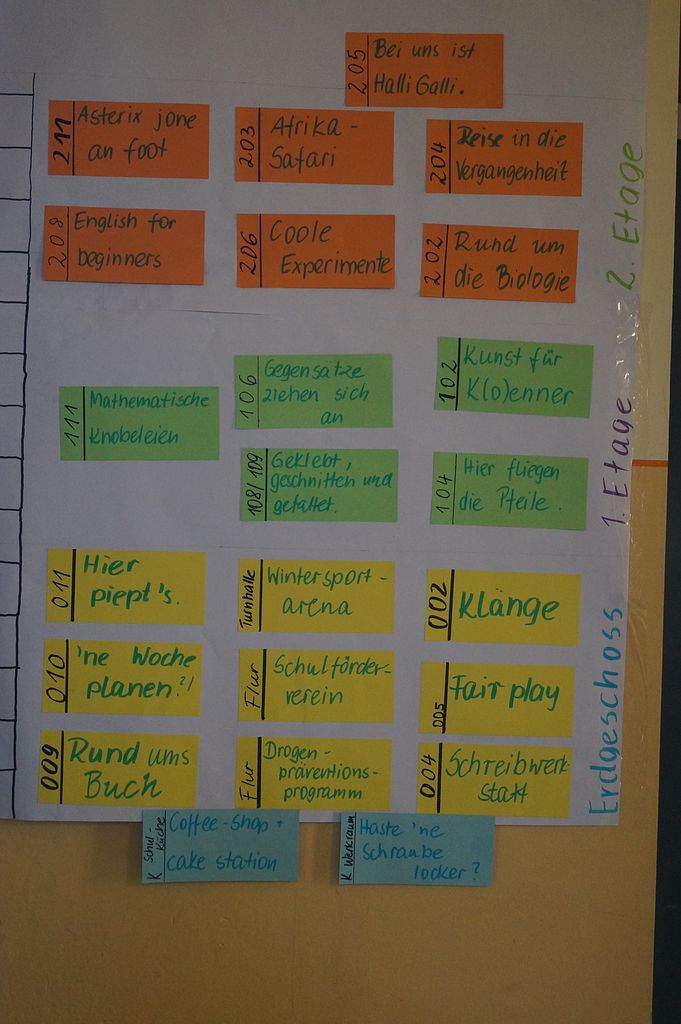 205
Bei uns ist
Halli Galli.
211
Asterix jone
an foot
203
Afrika-
Safari
204
Reise in die
Vergangenheit
208
English for
beginners
206
Coole
Experimente
202
Rund um
die Biologie
2. Etage
111
Mathematische
Knobeleien
106
Gegensätze
ziehen sich
an
102
Kunst für
K(ö)enner
108/109
Geklebt,
geschnitten und
gefaltet.
104
Hier fliegen
die Pfeile.
1. Etage
011
Hier
piept's.
Turnhalle
Wintersport-
arena
002
Klänge
010
'ne Woche
planen?!
Flur
Schulförder-
verein
005
Fair play
009
Rund ums
Buch
Flur
Drogen-
präventions-
programm
004
Schreibwerk-
statt
Erdgeschoss
K Schul-
küche
Coffee-Shop +
cake station
K Werkraum
Haste 'ne
Schraube
locker?